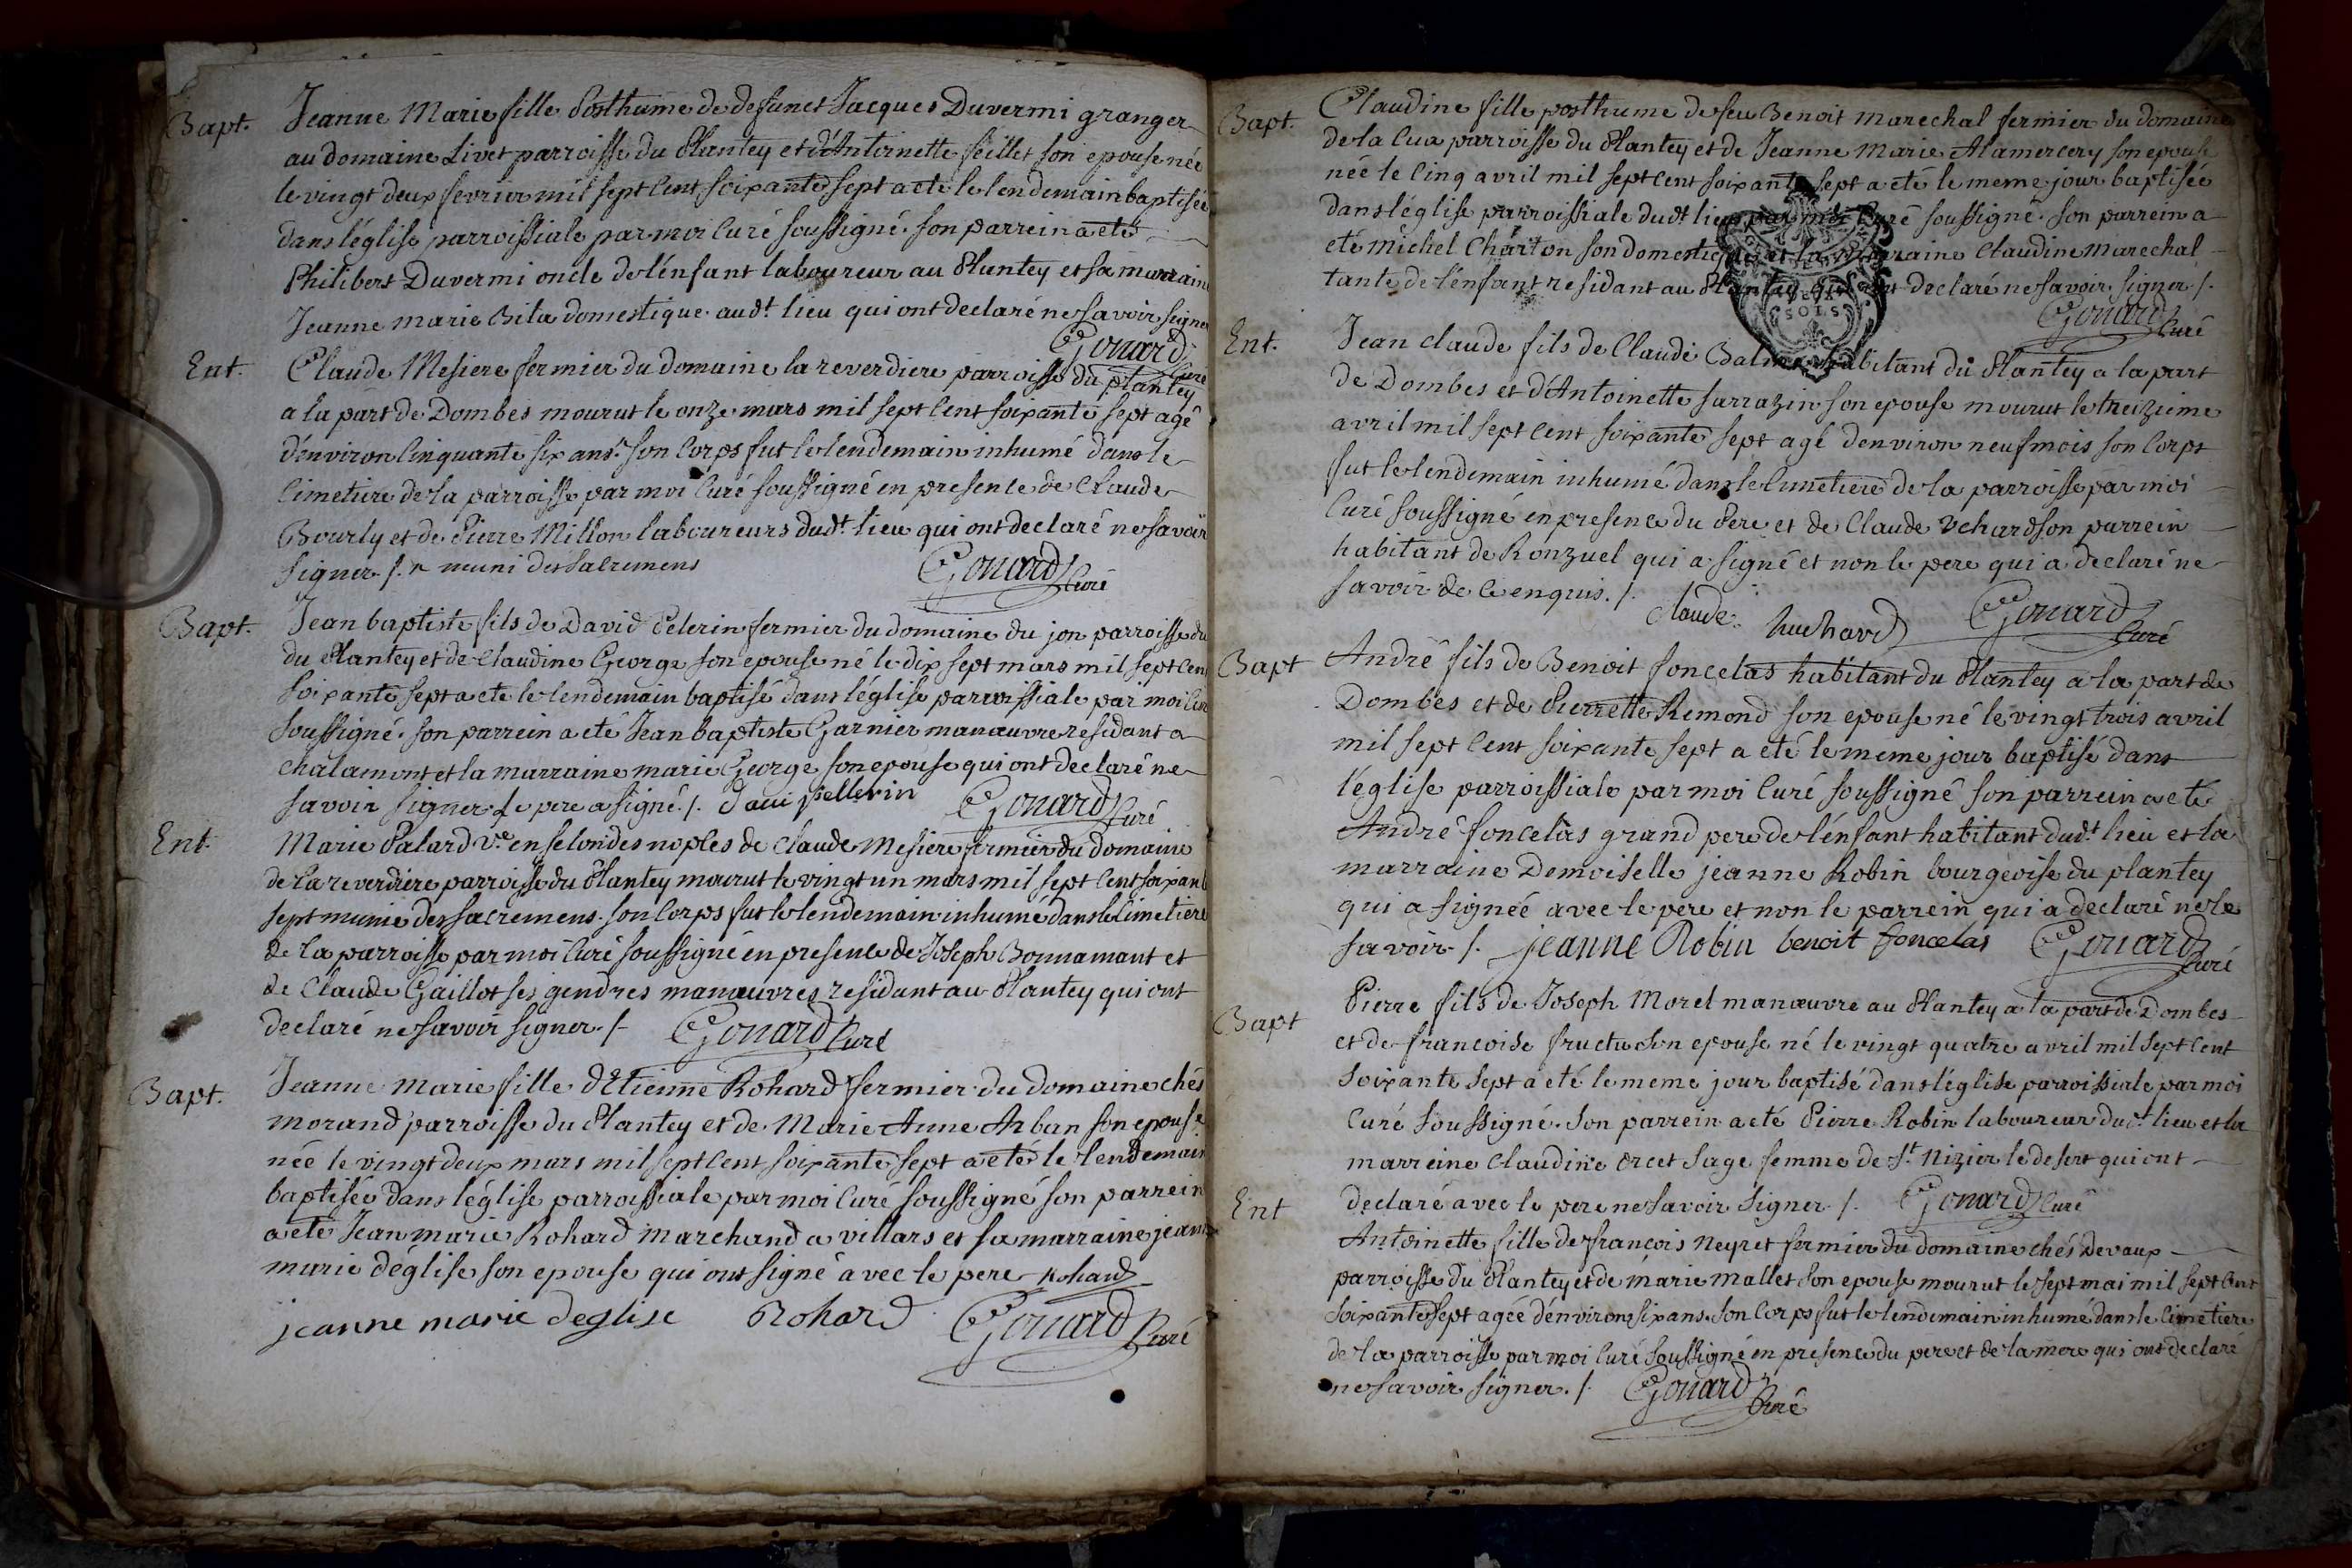 Bapt. Jeanne Marie fille Posthume de defunct Jacques Duvermi granger
au domaine Livet parroisse du Plantey et d'Antoinette feillet son epouse née
le vingt deux fevrier mil sept cent soixante sept a eté le lendemain baptisée
dans l'église parroissiale par moi curé soussigné. son parrein a eté
Philibert Duvermi oncle de l'énfant laboureur au Plantey et sa marraine
Jeanne marie Bila domestique audt. lieu qui ont declaré ne savoir signer
Gonard curé
Ent. Claude Mesiere fermier du domaine la reverdiere parroisse du plantey
a la part de Dombes mourut le onze mars mil sept cent soixante sept agé
d'énviron cinquante six ans. son corps fut le lendemain inhumé dans le
cimetiere de la parroisse par moi curé soussigné en presence de Claude
Bourly et de Pierre Millon laboureurs dudt. lieu qui ont declaré ne savoir
signer ./. muni des sacremens
Gonard curé
Bapt. Jean baptiste fils de David Pelerin fermier du domaine du jon parroisse du
du Plantey et de Claudine George son epouse né le dix sept mars mil sept cent
soixante sept a eté le lendemain baptisé dans l'église parroissiale par moi curé
soussigné. son parrein a eté Jean baptiste Garnier manœuvre residant a
chalamont et la marraine marie George son epouse qui ont declaré ne
savoir signer le pere a signé ./. daui pellerin Gonard curé
Ent. Marie Palard ve. en secondes noples de claude Mesiere fermier du domaine
de la reverdiere parroisse du Plantey mourut le vingt un mars mil sept cent soixante
sept munie des sacremens. son corps fut le lendemain inhumé dans le cimetiere
de la parroisse par moi curé soussigné en presence de Joseph Bonnamant et
de Claude Gaillot ses gendres manœuvres residant au Plantey qui ont
declaré ne savoir signer ./. Gonard curé
Bapt. Jeanne Marie fille d'Etienne Rohard fermier du domaine chés
morand parroisse du Plantey et de Marie Anne Arban son epouse
née le vingt deux mars mil sept cent soixante sept a eté le lendemain
baptisée dans l'église parroissiale par moi curé soussigné son parrein
a eté Jean marie Rohard marchand a villars et sa marraine jeanne
marie d'église son epouse qui ont signé avec le pere Rohard
jeanne marie deglise Rohard Gonard Curé
Bapt. Claudine fille posthume de feu Benoit marechal fermier du domaine
de la Cua parroisse du Plantey et de Jeanne Marie Alamercery son epouse
née le cinq avril mil sept cent soixante sept a eté le meme jour baptisée
dans l'église parroissiale dudt lieu par moi curé soussigné. son parrein a
eté michel Charton son domestique et la marraine Claudine marechal
tante de l'énfant residant au Plantey qui ont declaré ne savoir signer ./.
Gonard curé
Ent. Jean claude fils de Claude habitant du Plantey a la part
de Dombes et d'Antoinette sarrazin son epouse mourut le treizieme
avril mil sept cent soixante sept agé d'environ neuf mois son corps
fut le lendemain inhumé dans le cimetiere de la parroisse par moi
curé soussigné en presence du Pere et de Claude son parrein
habitant de Ronzuel qui a signé et non le pere qui a declaré ne
savoir de ce enquis ./.
claude huchard Gonard Curé
Bapt André fils de Benoit foncelas habitant du Plantey a la part de
Dombes et de Pierrette Remond son epouse né le vingt trois avril
mil sept cent soixante sept a eté le meme jour baptisé dans
l'église parroissiale par moi curé soussigné son parrein a eté
André foncelas grand pere de l'énfant habitant dudt. lieu et la
marraine Demoiselle jeanne Robin bourgeoise du plantey
qui a signée avec le pere et non le parrein qui a declaré ne le
savoir ./. jeanne Robin benoit foncelas Gonard Curé
Bapt Pierre fils de Joseph Morel manœuvre au Plantey a la part de Dombes
et de francoise fructu son epouse né le vingt quatre avril mil sept cent
soixante sept a eté le meme jour baptisé dans l'église parroissiale par moi
Curé soussigné. son parrein a eté Pierre Robin laboureur dudt. lieu et la
marreine Claudine Orcet sage femme de St. Nizier le desert qui ont
declaré avec le pere ne savoir signer ./. Gonard curé
Ent Antoinette fille de francois Neyret fermier du domaine chés Devaux
parroisse du Plantey et de marie mallet son epouse mourut le sept mai mil sept cent
soixante sept agée d'énviron six ans. son corps fut le lendemain inhumé dans le cimetiere
de la parroisse par moi curé soussigné en presence du pere et de la mere qui ont declaré
ne savoir signer ./. Gonard Curé